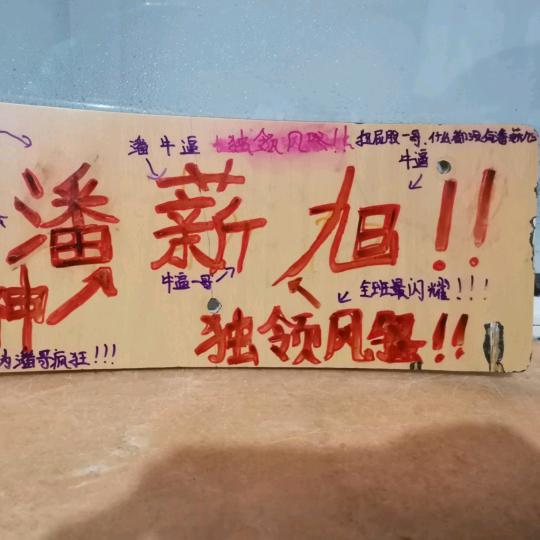 潘牛逼 独领风骚!! 扭屁股一哥.什么都没有潘薪旭
牛逼
潘薪旭!!
牛逼一哥
全班最闪耀!!!
神
独领风骚!!
为潘哥疯狂!!!